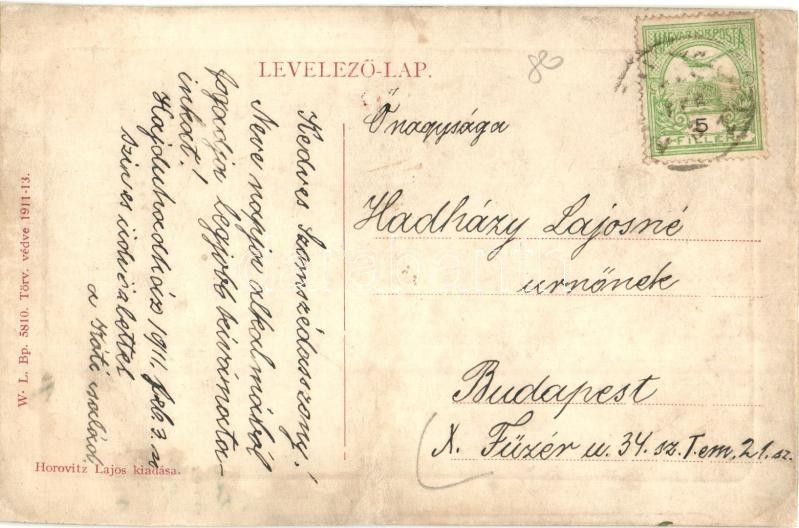 LEVELEZŐ-LAP.
MAGYAR KIR. POSTA
5
FILLÉR
Kedves Szomszédasszony!
Neve napja alkalmából
fogadja legjobb kívánata-
inkat!
Hajduhadház 1911. feb 3.
szives üdvözlettel
a Kóti család
Őnagysága
Hadházy Lajosné
urnőnek
Budapest
X. Füzér u. 34. sz. I. em. 21. sz.
W. L. Bp. 5810. Törv. védve 1911-13.
Horovitz Lajos kiadása.